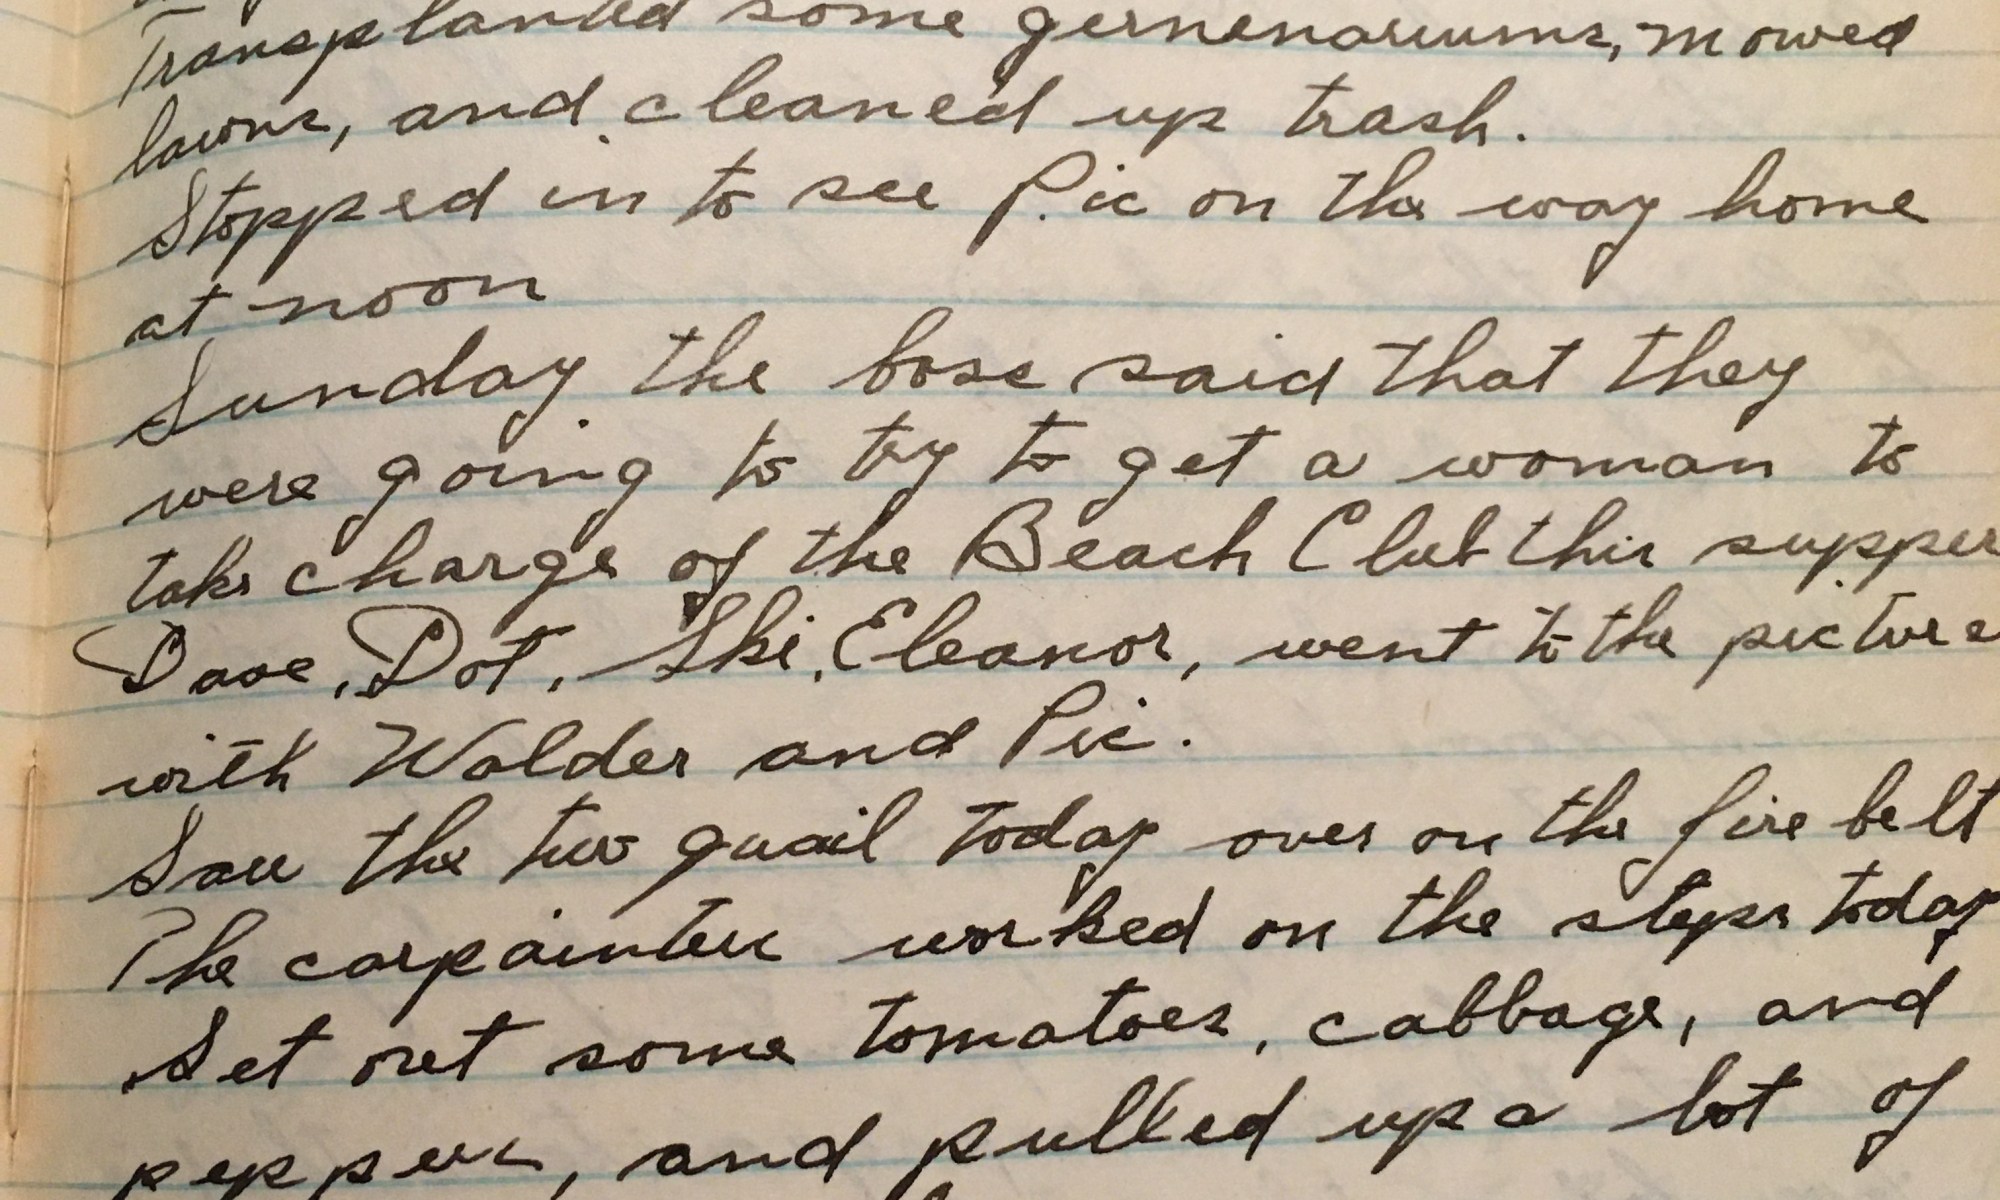 Transplanted some gernenariums, mowed
lawns, and cleaned up trash.
Stopped in to see Pic on the way home
at noon
Sunday the boss said that they
were going to try to get a woman to
take charge of the Beach Club this supper
Dave, Dot, Ski, Eleanor, went to the picture
with Walder and Pic.
Saw the two quail today over on the fire belt
The carpainter worked on the steps today
Set out some tomatoes, cabbage, and
peppers, and pulled up a lot of